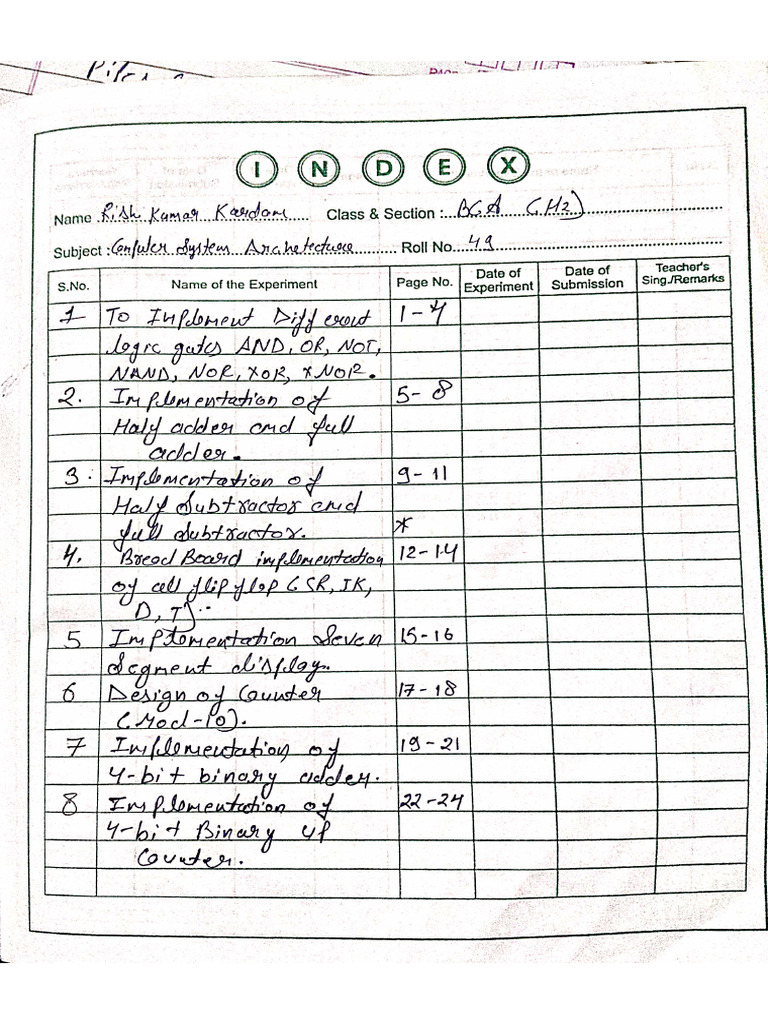 INDEX
Name Rish Kumar Kardam Class & Section : BCA (H2)
Subject : Computer System Archetecture Roll No. 49
S.No. Name of the Experiment Page No. Date of Experiment Date of Submission Teacher's Sing./Remarks
1 To Implement Different 1-4
logic gates AND, OR, NOT,
NAND, NOR, XOR, XNOR.
2. Implementation of 5-8
Half adder and full
adder.
3. Implementation of 9-11
Half Subtractor and
full Subtractor. *
4. Bread Board implementation 12-14
of all flip flop (SR, JK,
D, T)
5 Implementation Seven 15-16
Segment display.
6 Design of Counter 17-18
(Mod-10).
7 Implementation of 19-21
4-bit binary adder.
8 Implementation of 22-24
4-bit Binary up
Counter.